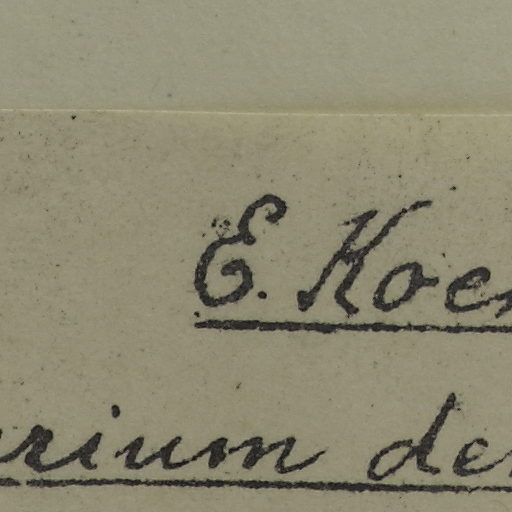 E. Koe
rium de